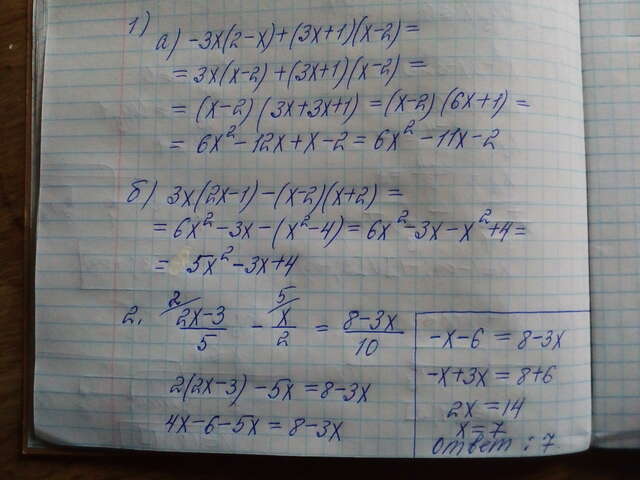 1)
а) -3x(2-x)+(3x+1)(x-2)=
= 3x(x-2)+(3x+1)(x-2)=
= (x-2)(3x+3x+1) = (x-2)(6x+1)=
= 6x²-12x+x-2=6x²-11x-2
б) 3x(2x-1)-(x-2)(x+2)=
=6x²-3x-(x²-4)=6x²-3x-x²+4=
= 5x²-3x+4
2. ²/(2x-3)/5 - ⁵/x/2 = (8-3x)/10
2(2x-3)-5x=8-3x
4x-6-5x=8-3x
-x-6=8-3x
-x+3x=8+6
2x=14
x=7
ответ: 7